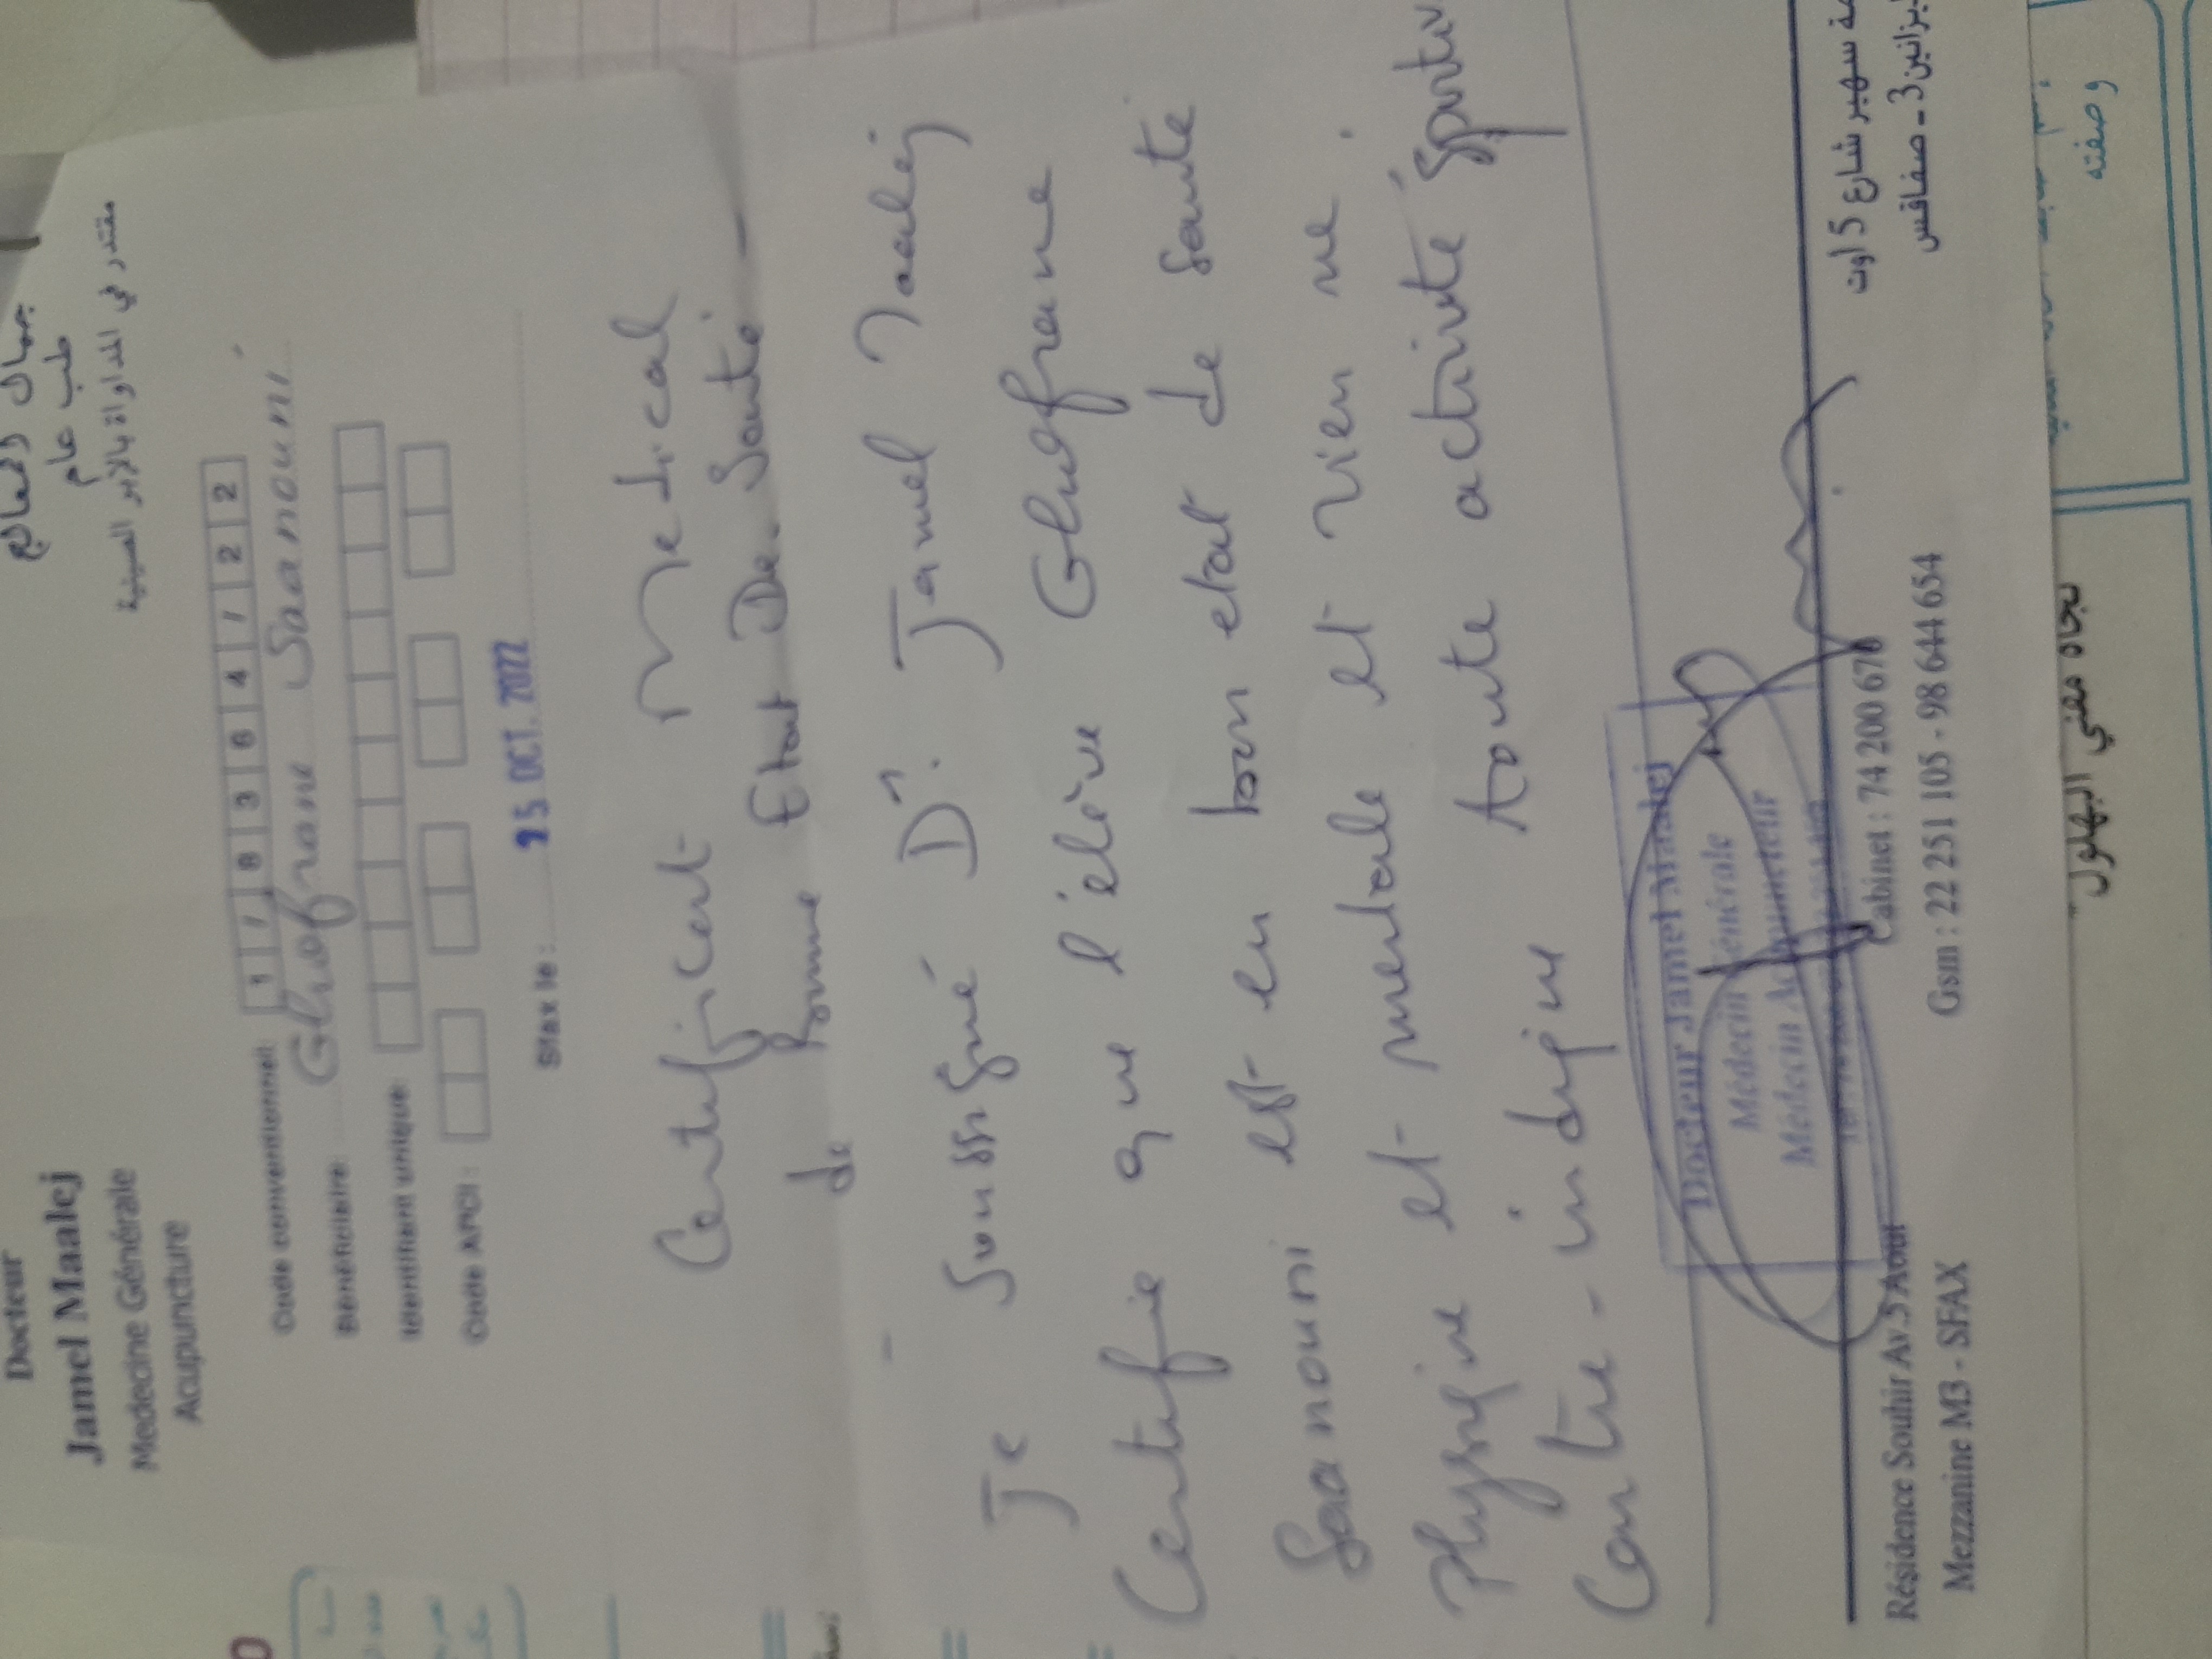 Docteur
Jamel Maalej
Medecine Générale
Acupuncture
جمال المعالج
طب عام
مقتدر في المداواة بالابر الصينية
Code conventionnel: 1 / 8 3 6 4 / 2 2
Bénéficiaire: Ghofrane Saanouni
Identifiant unique
Code APCI :
Sfax le : 25 OCT. 2022
Certificat Medical
de bonne Etat De Santé -
Je soussigné Dr. Jamel Maalej
Certifie que l'élève Ghofrane
Saanouni est en bon etat de sante
Physique et mentale et rien ne
Contre-indique toute activité sportiv
Docteur Jamel Maalej
Médecin Générale
Médecin Acupuncteur
Résidence Souhir Av.5 Aout
Mezzanine M3 - SFAX
Cabinet : 74 200 678
Gsm : 22 251 105 - 98 644 654
سهير شارع 5 اوت
3 - صفاقس
وصفته
نجاه مغني البهلول